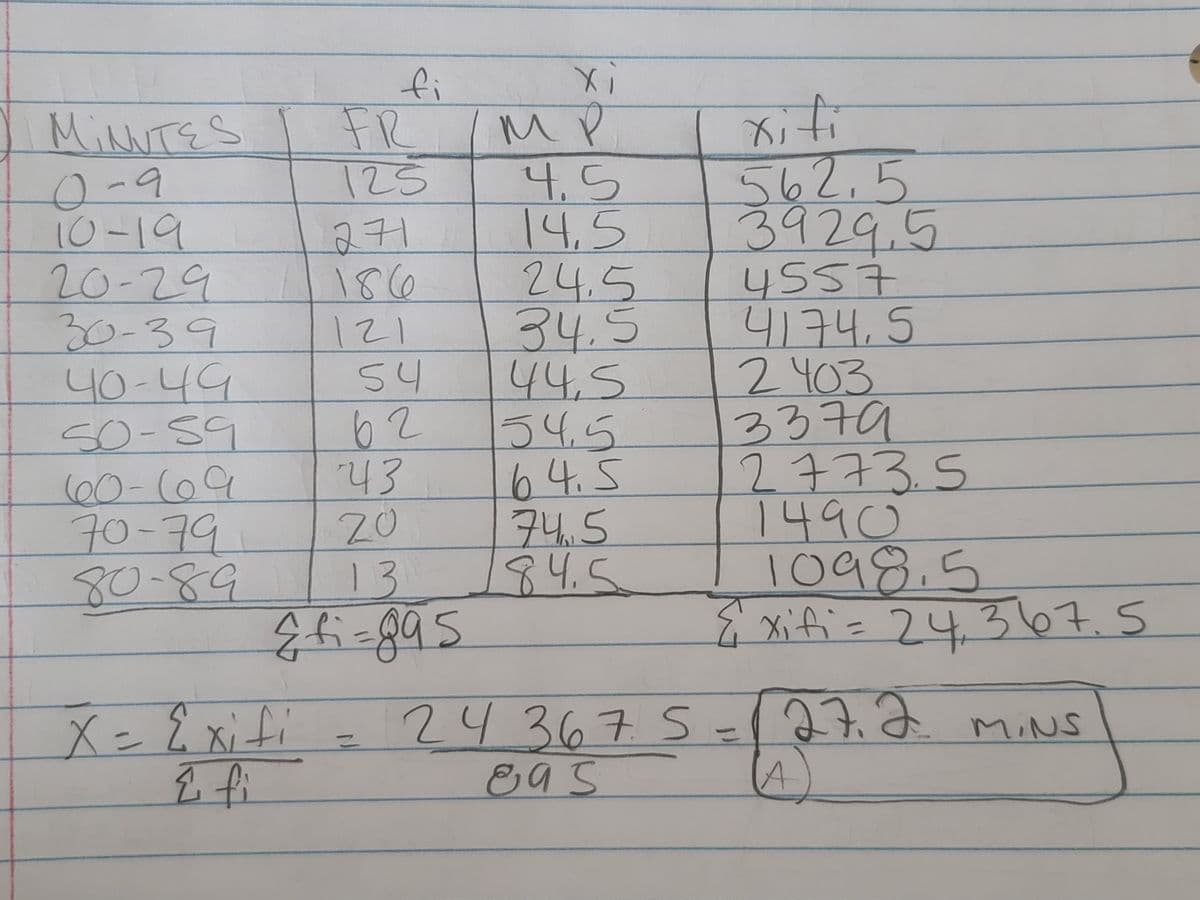 fi xi
MiNUTES FR M P xi fi
0-9 125 4.5 562.5
10-19 271 14.5 3929.5
20-29 186 24.5 4557
30-39 121 34.5 4174.5
40-49 54 44.5 2403
50-59 62 54.5 3379
60-69 43 64.5 2773.5
70-79 20 74.5 1490
80-89 13 84.5 1098.5
Σfi=895 Σ xifi = 24,367.5
x̄ = Σ xi fi = 24 367.5 = 27.2 MiNS
Σ fi 895 (A)